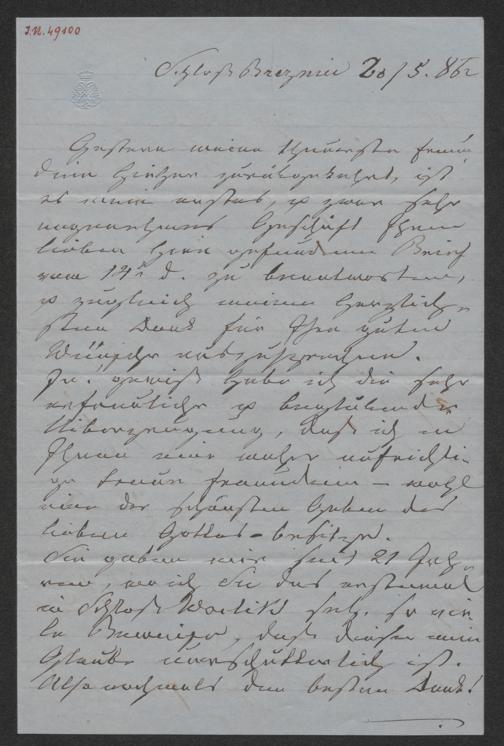 I.N. 49100
Schloß Breznic 20/5. 86
Gestern meine theuerste Freun-
din hieher zurückgekehrt, ist
es mein erstes, & zwar sehr
angenehmes Geschäft Ihren
lieben hier gefundenen Brief
vom 14t d. zu beantworten,
& zugleich meinen herzlich-
sten Dank für Ihre guten
Wünsche auszusprechen.
Ja, gewiß habe ich die sehr
erfreuliche & beglückende
Ueberzeugung, daß ich in
Ihnen eine wahre aufrichti-
ge treue Freundin – wohl
eine der schönsten Gaben des
lieben Gottes – besitze.
Sie gaben mir seit 21 Jah-
ren, wo ich Sie das erstemal
in Schloß Worlik sah, so vie-
le Beweise, daß dieser mein
Glaube unerschütterlich ist.
Also nochmals den besten Dank!